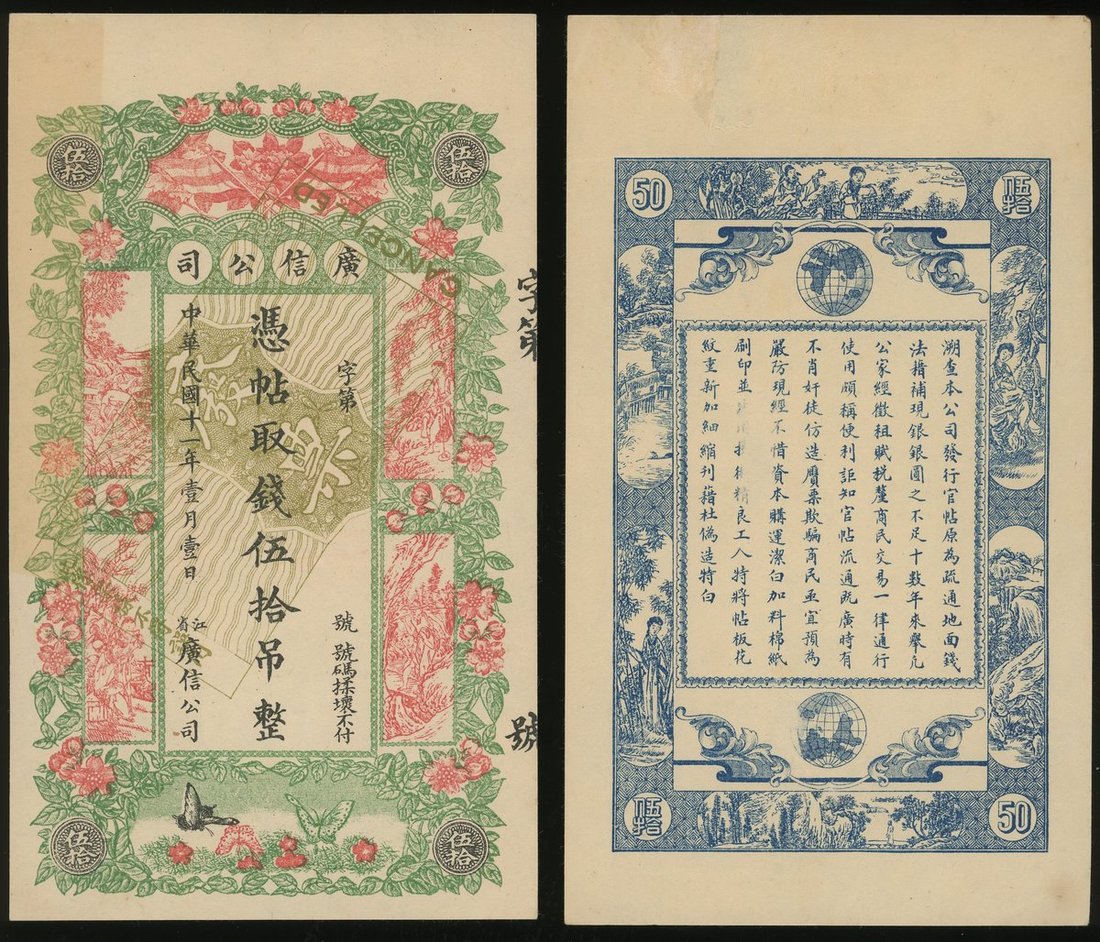 伍拾
伍拾
CANCELLED
廣信公司
字第
號
字第 號
號碼揉壞不付
憑帖取錢伍拾吊整
中華民國十一年壹月壹日
江省廣信公司
伍拾
伍拾
50
伍拾
溯查本公司發行官帖原為疏通地面錢
法藉補現銀銀圓之不足十數年來舉凡
公家經徵租賦税釐商民交易一律通行
使用頗稱便利詎知官帖流通既廣時有
不肖奸徒仿造贋票欺騙商民亟宜預為
嚴防現經不惜資本購運潔白加料棉紙
刷印並精良工人特將帖板花
紋重新加細縮刊藉杜偽造特白
伍拾
50